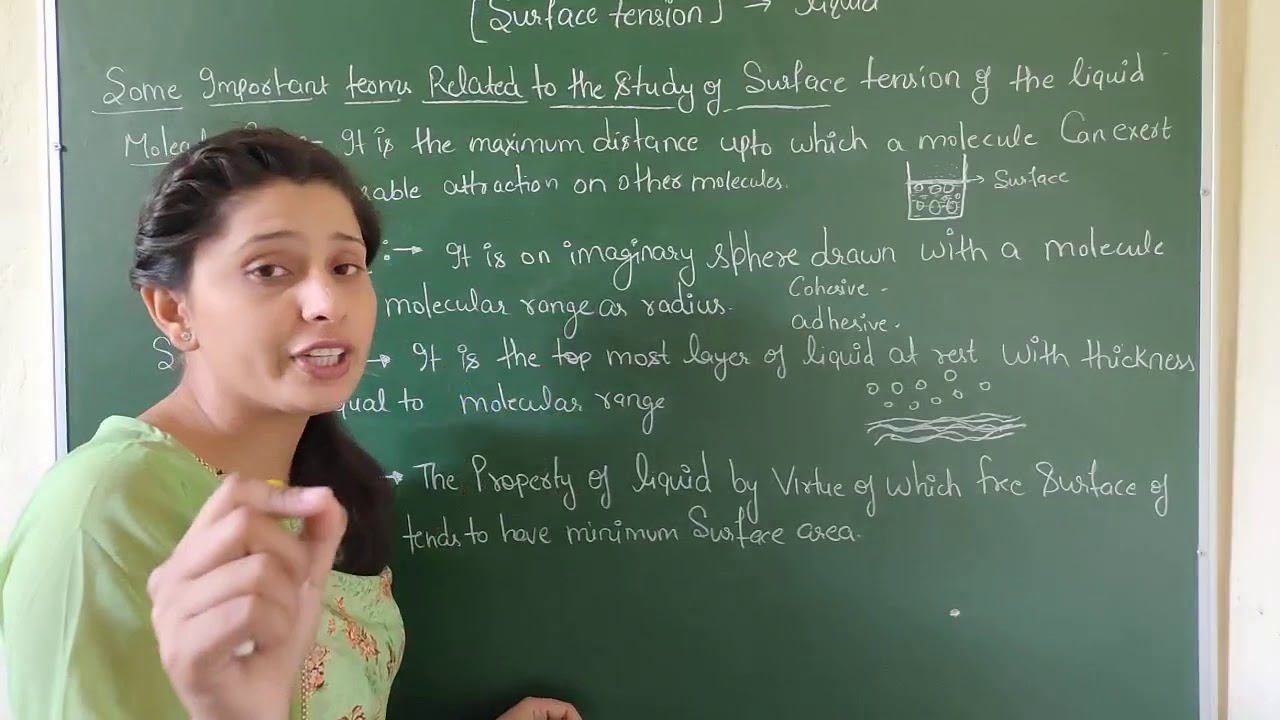 [Surface tension] → liquid
Some Important terms Related to the Study of Surface tension of the liquid
It is the maximum distance upto which a molecule Can exert
attraction on other molecules.
→ Surface
:→ It is on imaginary sphere drawn with a molecule
molecular range as radius.
Cohesive -
adhesive.
→ It is the top most layer of liquid at rest with thickness
to molecular range
→ The Property of liquid by Virtue of which free Surface of
tends to have minimum Surface area.